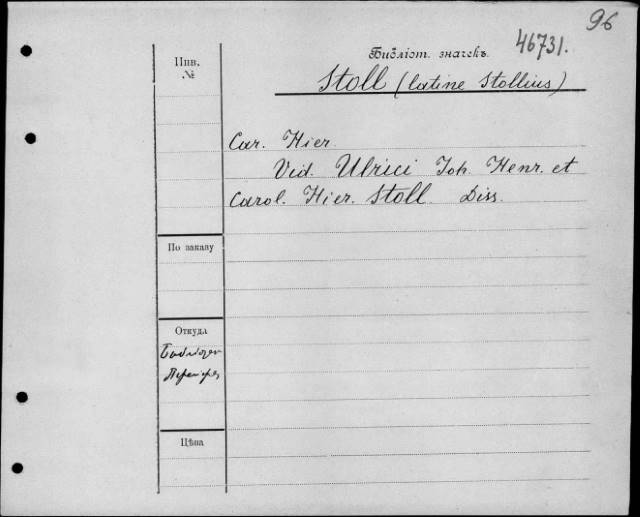 96
46731.
Библіот. значекъ
Инв.
№
Stoll (latine Stollius)
Car. Hier.
Vid. Ulrici Joh. Henr. et
Carol. Hier. Stoll. Diss.
По заказу
Откуда
Цѣна